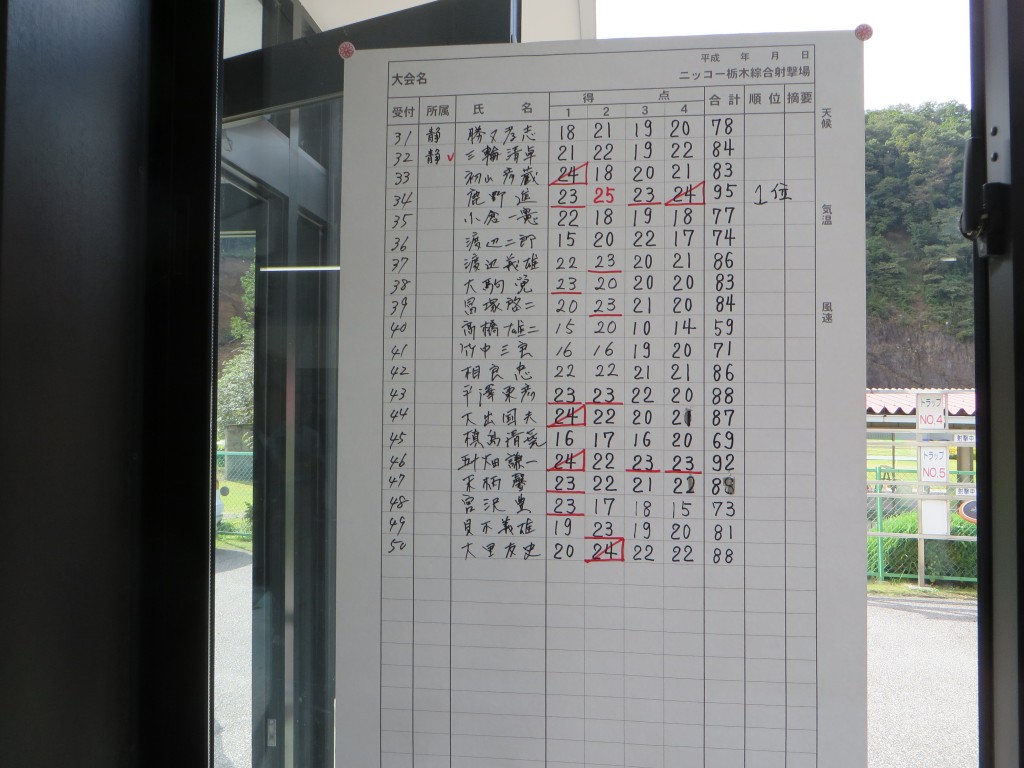 平成 年 月 日
大会名 ニッコー栃木綜合射撃場
受付 所属 氏 名 得 点 合計 順位 摘要
1 2 3 4
31 静 勝又彦志 18 21 19 20 78
32 静 三輪清卓 21 22 19 22 84
33 初山彦蔵 24 18 20 21 83
34 鹿野進 23 25 23 24 95 1位
35 小倉一 22 18 19 18 77
36 渡辺二郎 15 20 22 17 74
37 渡辺義雄 22 23 20 21 86
38 大駒 23 20 20 20 83
39 黒塚啓二 20 23 21 20 84
40 高橋雄二 15 20 10 14 59
41 竹中三 16 16 19 20 71
42 相良忠 22 22 21 21 86
43 平澤東彦 23 23 22 20 88
44 大出国夫 24 22 20 21 87
45 清 16 17 16 20 69
46 畑謙一 24 22 23 23 92
47 柄馨 23 22 21 22 88
48 宮沢豊 23 17 18 15 73
49 貝木義雄 19 23 19 20 81
50 大里友史 20 24 22 22 88
天候
気温
風速
トラップ
NO.4
射撃中
トラップ
NO.5
射撃中